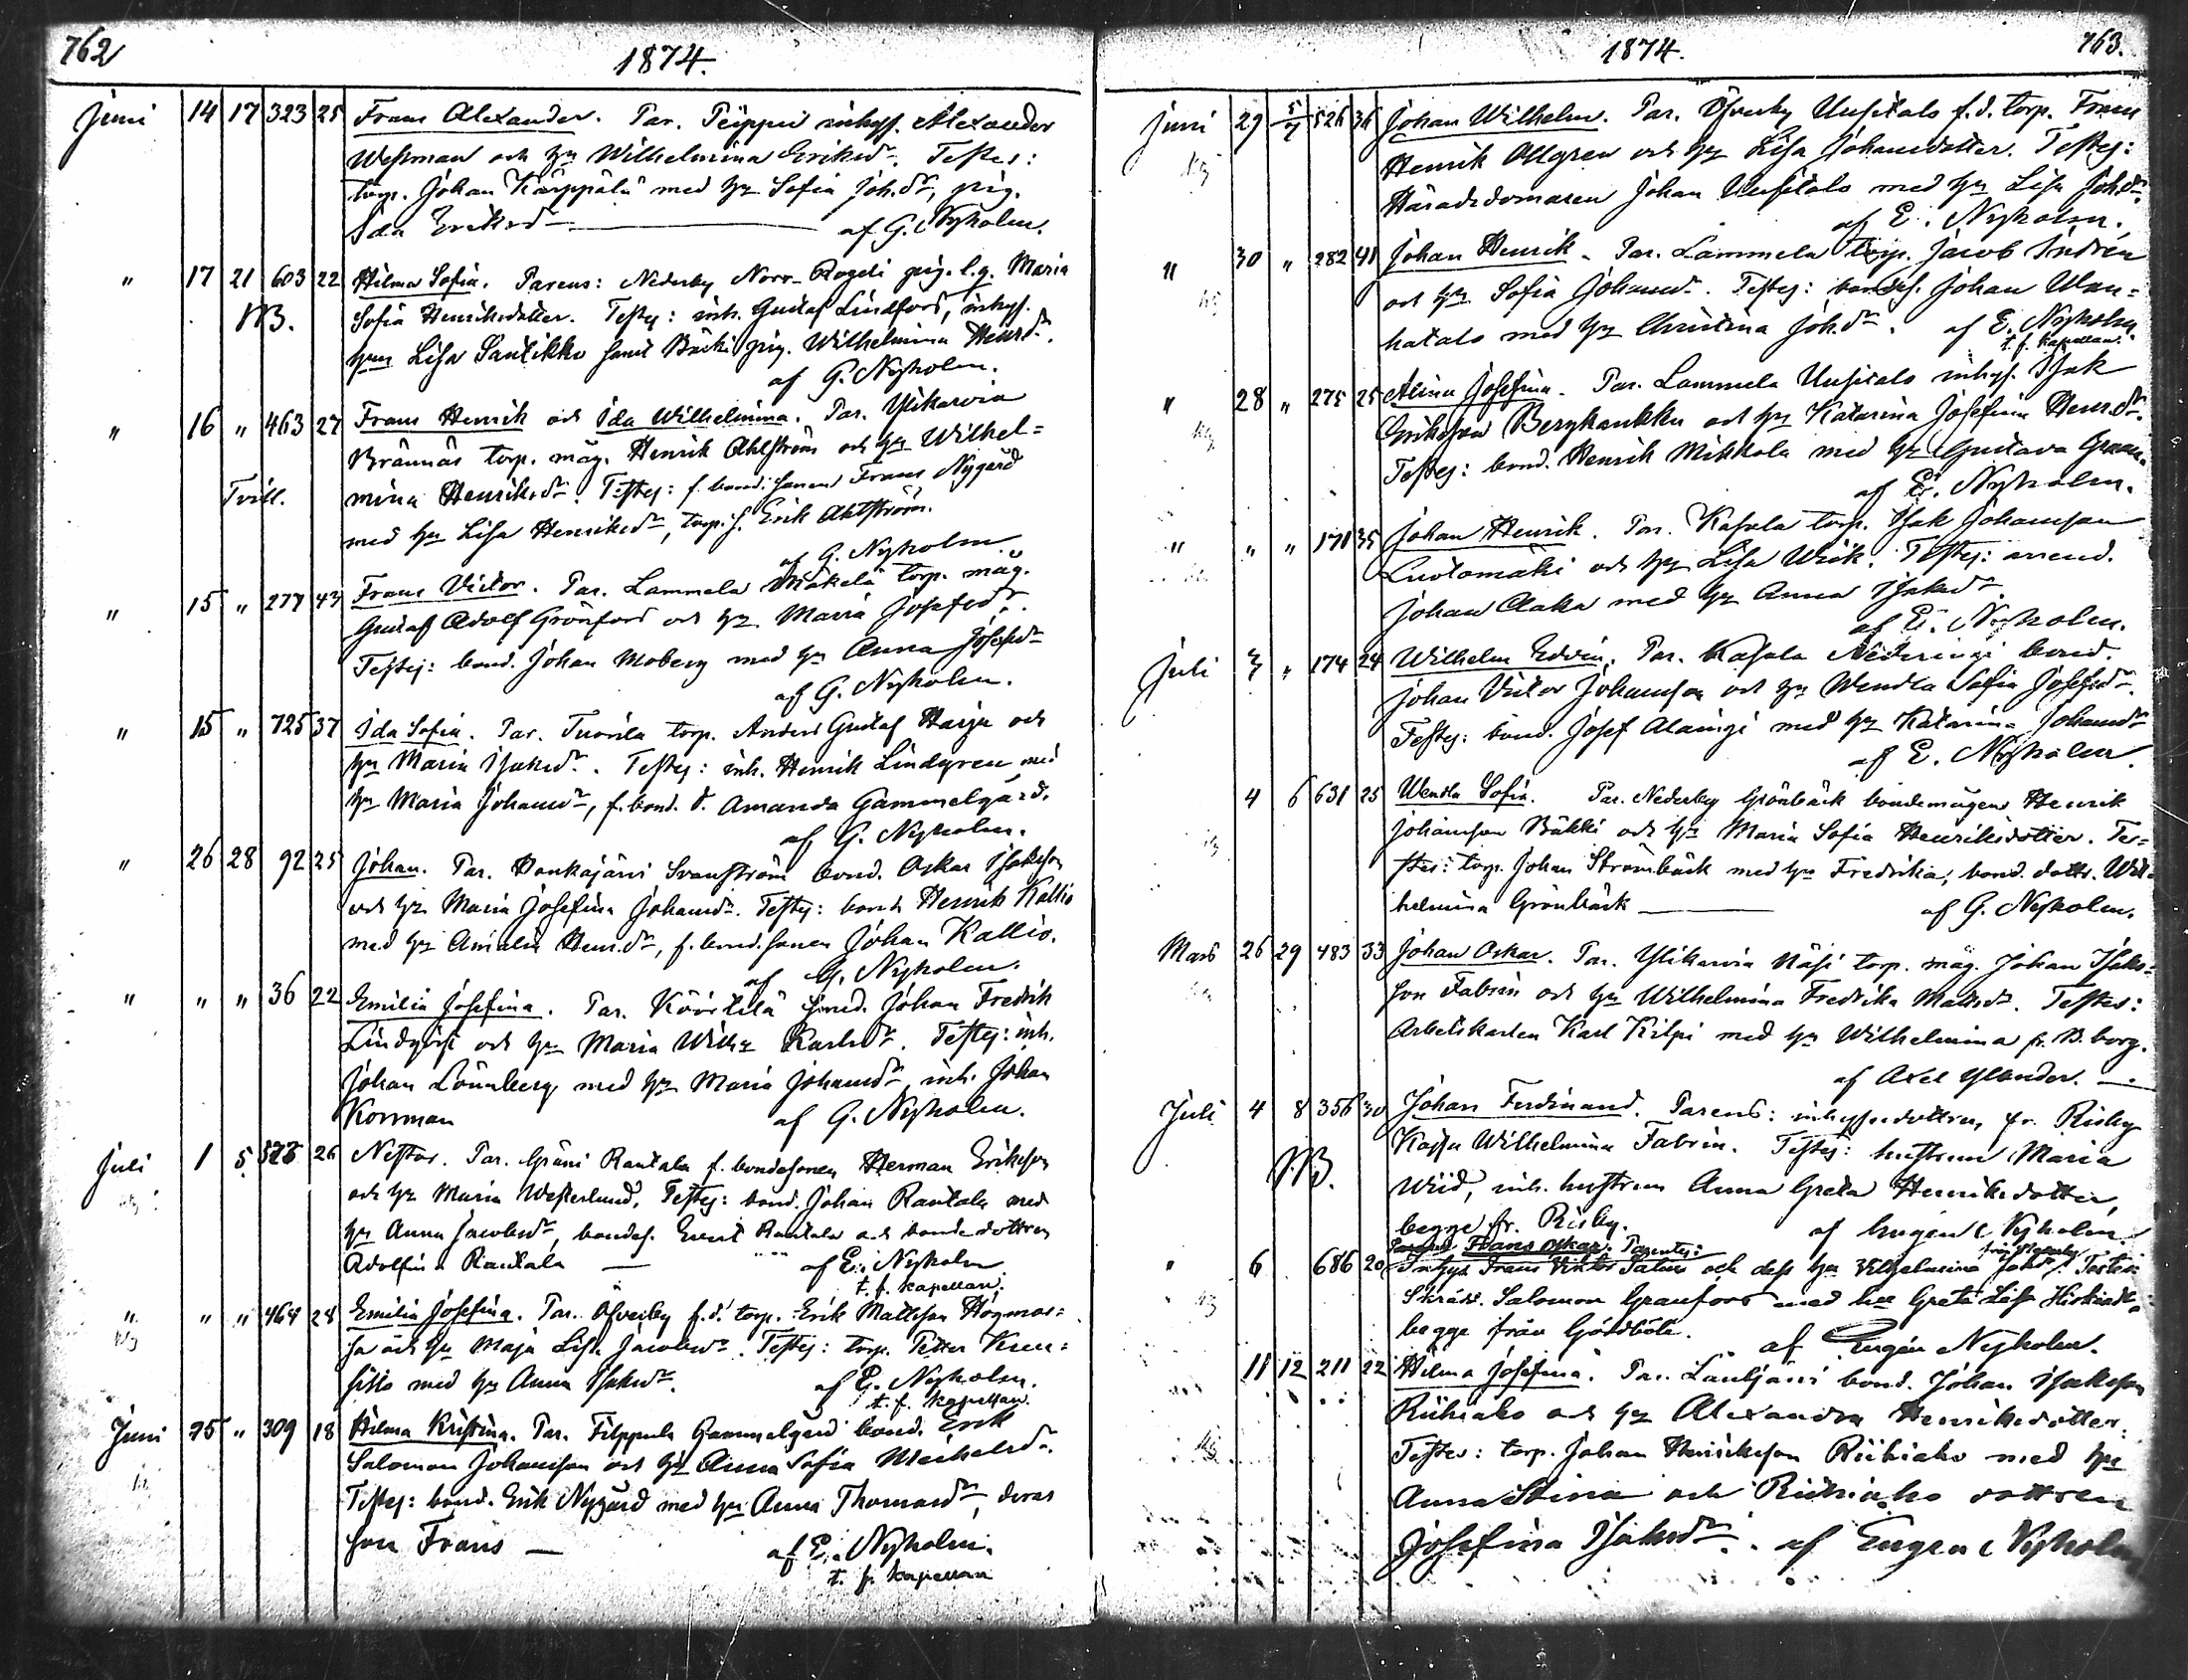 762
1874.
Juni 14 17 323 25 Frans Alexander. Par. Peippu inhys. Alexander
Westman och hu Wilhelmina Eriksdr. Testes:
torp. Johan Kärppälä med hu Sofia Joh.dr, pig.
Ida Eriksdr — af G. Nyholm.
" 17 21 603 22 Hilma Sofia. Parens: Nederby Norr-Rogeli pig. l.q. Maria
NB. Sofia Henriksdotter. Testes: inh. Gustaf Lindfors, inhys.
hun Lisa Santikko samt Bäcki pig. Wilhelmina Henrdr.
af G. Nyholm.
" 16 " 463 27 Frans Henrik och Ida Wilhelmina. Par. Ylikarvia
Brännäs torp. måg. Henrik Ahlström och hu Wilhel=
Tvill. mina Henriksdr. Testes: f. bond.sonen Frans Nygård
med hu Lisa Henriksdr, torp. s. Erik Ahlström.
af G. Nyholm.
" 15 " 277 43 Frans Victor. Par. Lammela Mäkelä torp. måg.
Gustaf Adolf Grönfors och hu Maria Josefsdr.
Testes: bond. Johan Moberg med hu Anna Josefsdr
af G. Nyholm.
" 15 " 725 37 Ida Sofia. Par. Tuorila torp. Anders Gustaf Harju och
hu Maria Isaksdr. Testes: inh. Henrik Lindgren med
hu Maria Johansdr, f. bond. d. Amanda Gammelgård.
af G. Nyholm.
" 26 28 92 25 Johan. Par. Honkajärvi Svanström bond. Oskar Isaksson
och hu Maria Josefina Johansdr. Testes: bond. Henrik Kallio
med hu Amalia Henr.dr, f. bond.sonen Johan Kallio.
af G. Nyholm.
" " " 36 22 Emilia Josefina. Par. Köörtilä smed. Johan Fredrik
Lindqvist och hu Maria Wilh:a Karlsdr. Testes: inh.
Johan Lönnberg med hu Maria Johansdr, inh. Johan
Korrman af G. Nyholm.
Juli 1 5 26 Nestor. Par. Gräni Rantala f. bondesonen Herman Eriksson
och hu Maria Westerlund. Testes: bond. Johan Rantala med
hu Anna Jacobsdr, bondes. Rantala och bondedottren
Adolfina Rantala — af E. Nyholm
t. f. kapellan.
" " " 464 28 Emilia Josefina. Par. Öfverby f.d. torp. Erik Mattsson Högmos=
sa och hu Maja Lisa Jacobsdr. Testes: torp. Petter Kuu=
sisto med hu Anna Isaksdr. af E. Nyholm.
t. f. kapellan.
Juni 25 " 309 18 Hilma Kristina. Par. Filppula Gammelgård bond. Erik
Salomon Johansson och hu Anna Sofia Michelsdr.
Testes: bond. Erik Nygård med hu Anna Thomasdr, deras
son Frans — af E. Nyholm.
t. f. kapellan
1874.
763.
Juni 29 5/7 526 36 Johan Wilhelm. Par. Öfverby Uusitalo f.d. torp. Frans
Henrik Ahlgren och hu Lisa Johansdotter. Testes:
Häradsdomaren Johan Uusitalo med hu Lisa Joh.dr.
af E. Nyholm.
" 30 " 282 41 Johan Henrik. Par. Lammela torp. Jacob Indrén
och hu Sofia Johansdr. Testes: bondes. Johan Wan=
hatalo med hu Christina Joh.dr. af E. Nyholm.
t. f. kapellan.
" 28 " 275 25 Alina Josefina. Par. Lammela Uusitalo inhys. Isak
Eriksson Bergkaukku och hu Katarina Josefina Henr.dr.
Testes: bond. Henrik Mikkola med hu Gustava
af E. Nyholm.
" " " 171 35 Johan Henrik. Par. Kasala torp. Isak Johansson
Luotomäki och hu Lisa Wiik. Testes: arrend.
Johan Olaka med hu Anna Isaksdr.
af E. Nyholm.
Juli 3 " 174 24 Wilhelm Edvin. Par. Kasala Nederingi bond.
Johan Victor Johansson och hu Wendla Sofia Josefsdr.
Testes: bond. Josef Alaingi med hu Katarina Johansdr
af E. Nyholm.
4 6 631 25 Wendla Sofia. Par. Nederby Grönbäck bondemågen Henrik
Johansson Bäkki och hu Maria Sofia Henriksdotter. Tes=
tes: torp. Johan Strömbäck med hu Fredrika, bond. dottr. Wil=
helmina Grönbäck — af G. Nyholm.
Mars 26 29 483 33 Johan Oskar. Par. Ylikarvia Näsi torp. måg. Johan Isaks=
son Fabrin och hu Wilhelmina Fredrika Mattsdr. Testes:
Arbetskarlen Karl Kilpi med hu Wilhelmina fr. B.borg.
af Axel Ylander. —
Juli 4 8 356 30 Johan Ferdinand. Parens: inhysesdottren fr. Risby
NB. Kajsa Wilhelmina Fabrin. Testes: hustrun Maria
Wiid, inh. hustrun Anna Greta Henriksdotter,
begge fr. Risby. af Eugen Nyholm.
" 6 686 20 Frans Oskar. Parentes:
Inhys Frans Viktor och dess hu Vilhelmina
Skrädd. Salomon Granfors med hu Greta Lisa
begge från Göldböle. af Eugen Nyholm.
11 12 211 22 Hilma Josefina. Par. Lautjärvi bond. Johan Isaksson
Riihiaho och hu Alexandra Henriksdotter.
Testes: torp. Johan Henriksson Riihiaho med hu
Anna Stina och Riihiaho dottren
Josefina Isaksdr. af Eugen Nyholm